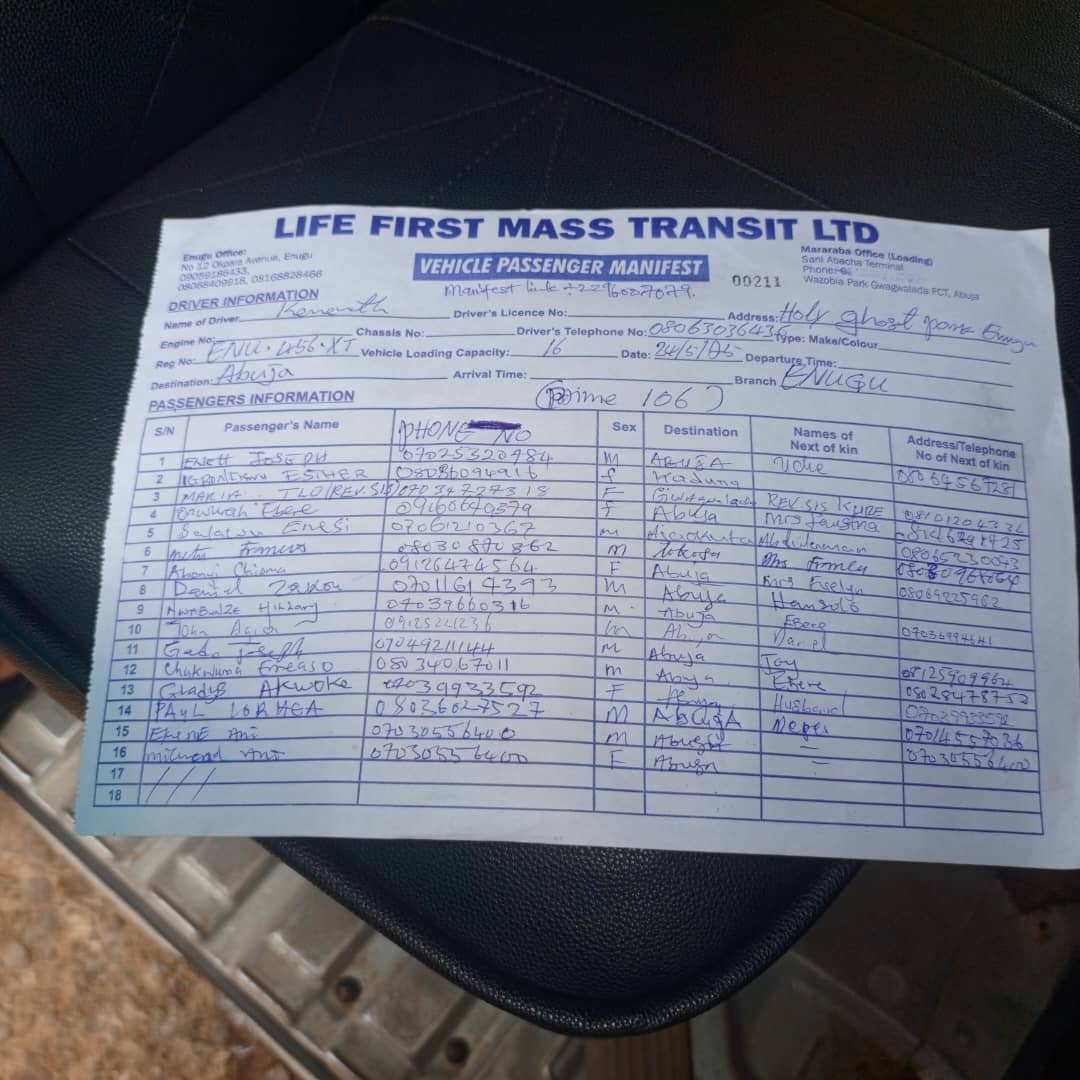 LIFE FIRST MASS TRANSIT LTD
Enugu Office:
No 12 Okpara Avenue, Enugu
09059186433,
08068409918, 08168828466
VEHICLE PASSENGER MANIFEST
00211
Mararaba Office (Loading)
Sani Abacha Terminal
Phone:
Wazobia Park Gwagwalada FCT, Abuja
Manifest link
DRIVER INFORMATION
Name of Driver Kenneth Driver's Licence No: Address: Holy ghost park Enugu
Engine No: Chassis No: Driver's Telephone No: 08063036435 Type: Make/Colour
Reg No: ENU·456·XT Vehicle Loading Capacity: 16 Date: 24/5/ Departure Time:
Destination: Abuja Arrival Time: Branch ENUGU
PASSENGERS INFORMATION (Prime 106)
S/N Passenger's Name PHONE NO Sex Destination Names of Next of kin Address/Telephone No of Next of kin
1 JOSEPH 07025320484 M ABUJA Uche
2 ESTHER 08086094916 f Kaduna
3 MARIA F Gwagwalada REV. SIS
4 Ebere 09160640579 F Abuja Mrs Faustina
5 Enesi 07061210367 m
6 Francis 08030870862 M
7 Chioma 09126474564 F Abuja Mrs Evelyn 08069225962
8 Daniel 07011614393 m Abuja
9 Hillary 07039660316 M Abuja Ebere 07036994641
10 John 09125221236 m Abuja Daniel
11 Joseph 07049211144 M Abuja Joy 08125909962
12 Chukwuma 08034067011 m Abuja Ebere 08028478752
13 Gladys Akwoke 07039933592 F Abuja Husband
14 PAUL 08036027527 M ABUJA 07014557036
15 Ani 07030556400 m Abuja - 07030556400
16 Ani 07030556400 F Abuja -
17
18